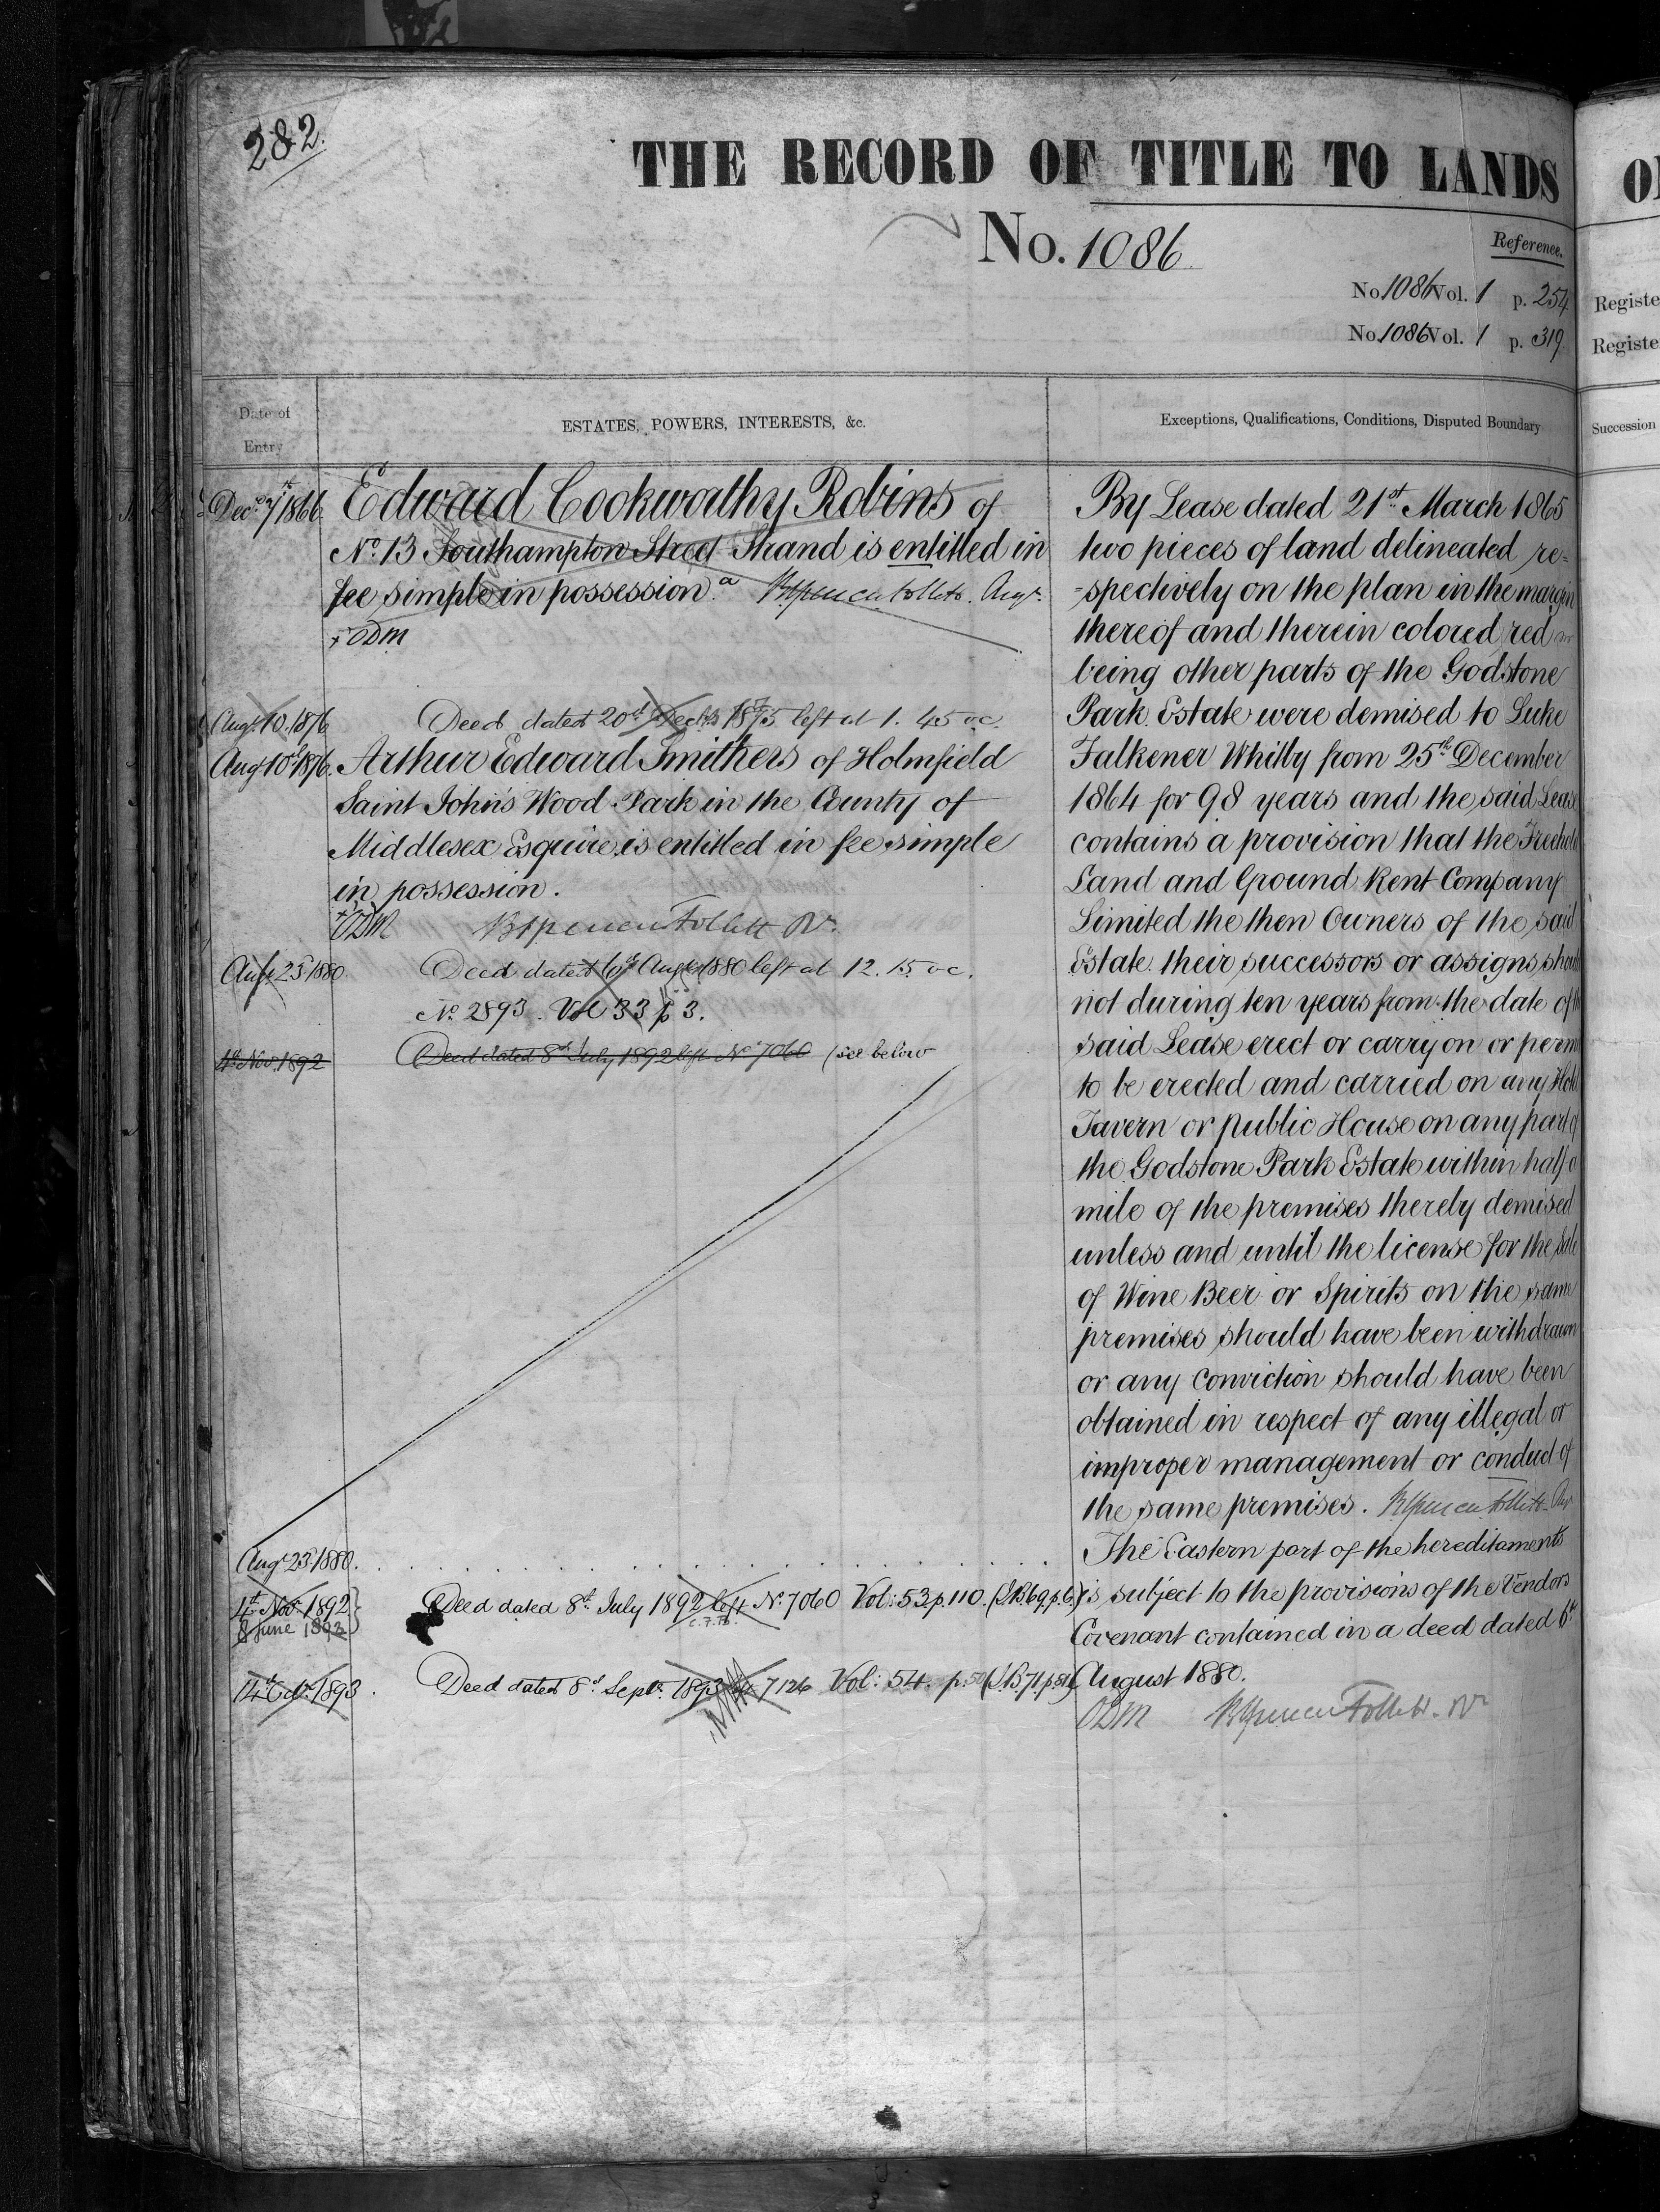 282.
THE RECORD OF TITLE TO LANDS
No. 1086
Reference.
No 1086 Vol. 1 p. 254
No. 1086 Vol. 1 p. 319
Date of
Entry
ESTATES, POWERS, INTERESTS, &c.
Decr. 7th 1866
Edward Cookworthy Robins of
No. 13 Southampton Street Strand is entitled in
fee simple in possession. a
+ ODM
Augt. 10. 1876
Deed dated 20th Decr. 1875 left at 1. 45 oc
Augt 10th 1876.
Arthur Edward Smithers of Holmfield
Saint John's Wood Park in the County of
Middlesex Esquire, is entitled in fee simple
in possession.
+ ODM BSpencer Follett Rr.
Augt 23rd 1880.
Deed dated 6th Augt 1880 left at 12. 15 oc.
No. 2893. Vol 33 p 3.
4th Nov. 1892
Deed dated 8th July 1892 left No. 7060 (see below
Augt 23rd 1880.
4th Nov. 1892
8 June 1893
Deed dated 8th July 1892 left No. 7060 Vol: 53. p. 110.
14th Octr. 1893.
Deed dated 8th Septr. 1893 7126 Vol: 54. p. 50
Exceptions, Qualifications, Conditions, Disputed Boundary
By Lease dated 21st March 1865
two pieces of land delineated re-
-spectively on the plan in the margin
thereof and therein colored red
being other parts of the Godstone
Park Estate were demised to Luke
Falkener Whitby from 25th December
1864 for 98 years and the said Lease
contains a provision that the Freehold
Land and Ground Rent Company
Limited the then Owners of the said
Estate their successors or assigns should
not during ten years from the date of
said Lease erect or carry on or permit
to be erected and carried on any Hotel
Tavern or public House on any part of
the Godstone Park Estate within half a
mile of the premises thereby demised
unless and until the license for the Sale
of Wine Beer or Spirits on the same
premises should have been withdrawn
or any conviction should have been
obtained in respect of any illegal or
improper management or conduct of
the same premises. BSpencer Follett
The Eastern part of the hereditaments
is subject to the provisions of the Vendors
Covenant contained in a deed dated 6th
August 1880.
ODM BSpencer Follett. Rr
Registe
Registe
Succession